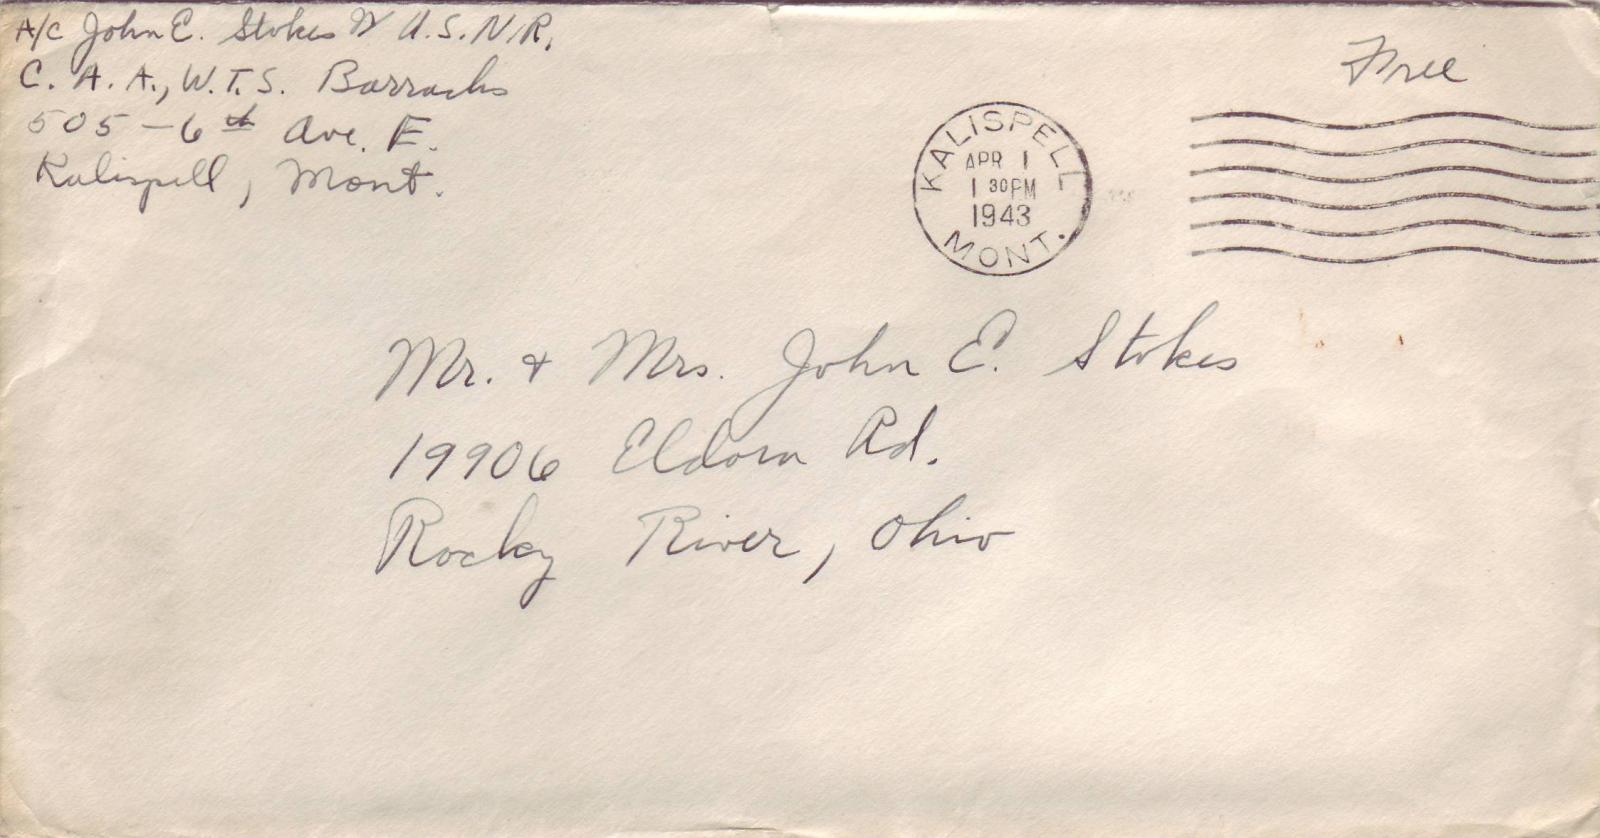 A/C John E. Stokes IV U.S.N.R.
C.A.A., W.T.S. Barracks
505-6th Ave. E.
Kalispell, Mont.
Free
KALISPELL
APR 1
1 30PM
1943
MONT.
Mr. + Mrs. John E. Stokes
19906 Eldora Rd.
Rocky River, Ohio